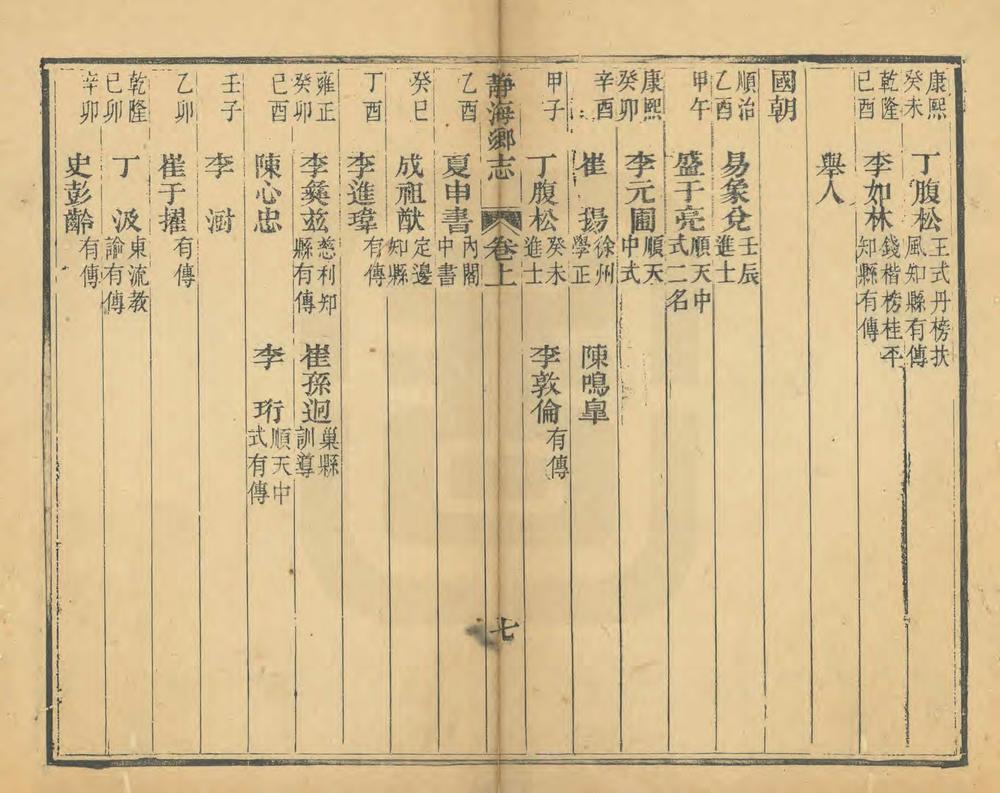 康熙癸未　丁腹松王式丹榜扶風知縣有傳
乾隆己酉　李如林錢楷榜桂平知縣有傳
舉人
國朝
順治乙酉　易象兌壬辰進士
甲午　盛于亮順天中式二名
康熙癸卯　李元圃順天中式
辛酉　崔　揚徐州學正　陳鳴臯
甲子　丁腹松癸未進士　李敦倫有傳
靜海鄉志　卷上　七
乙酉　夏申書內閣中書
癸巳　成祖猷定邊知縣
丁酉　李進瑋有傳
雍正癸卯　李彝兹慈利知縣有傳　崔孫迥巢縣訓導
己酉　陳心忠　李　珩順天中式有傳
壬子　李　澍
乙卯　崔于擢有傳
乾隆己卯　丁　汲東流教諭有傳
辛卯　史彭齡有傳